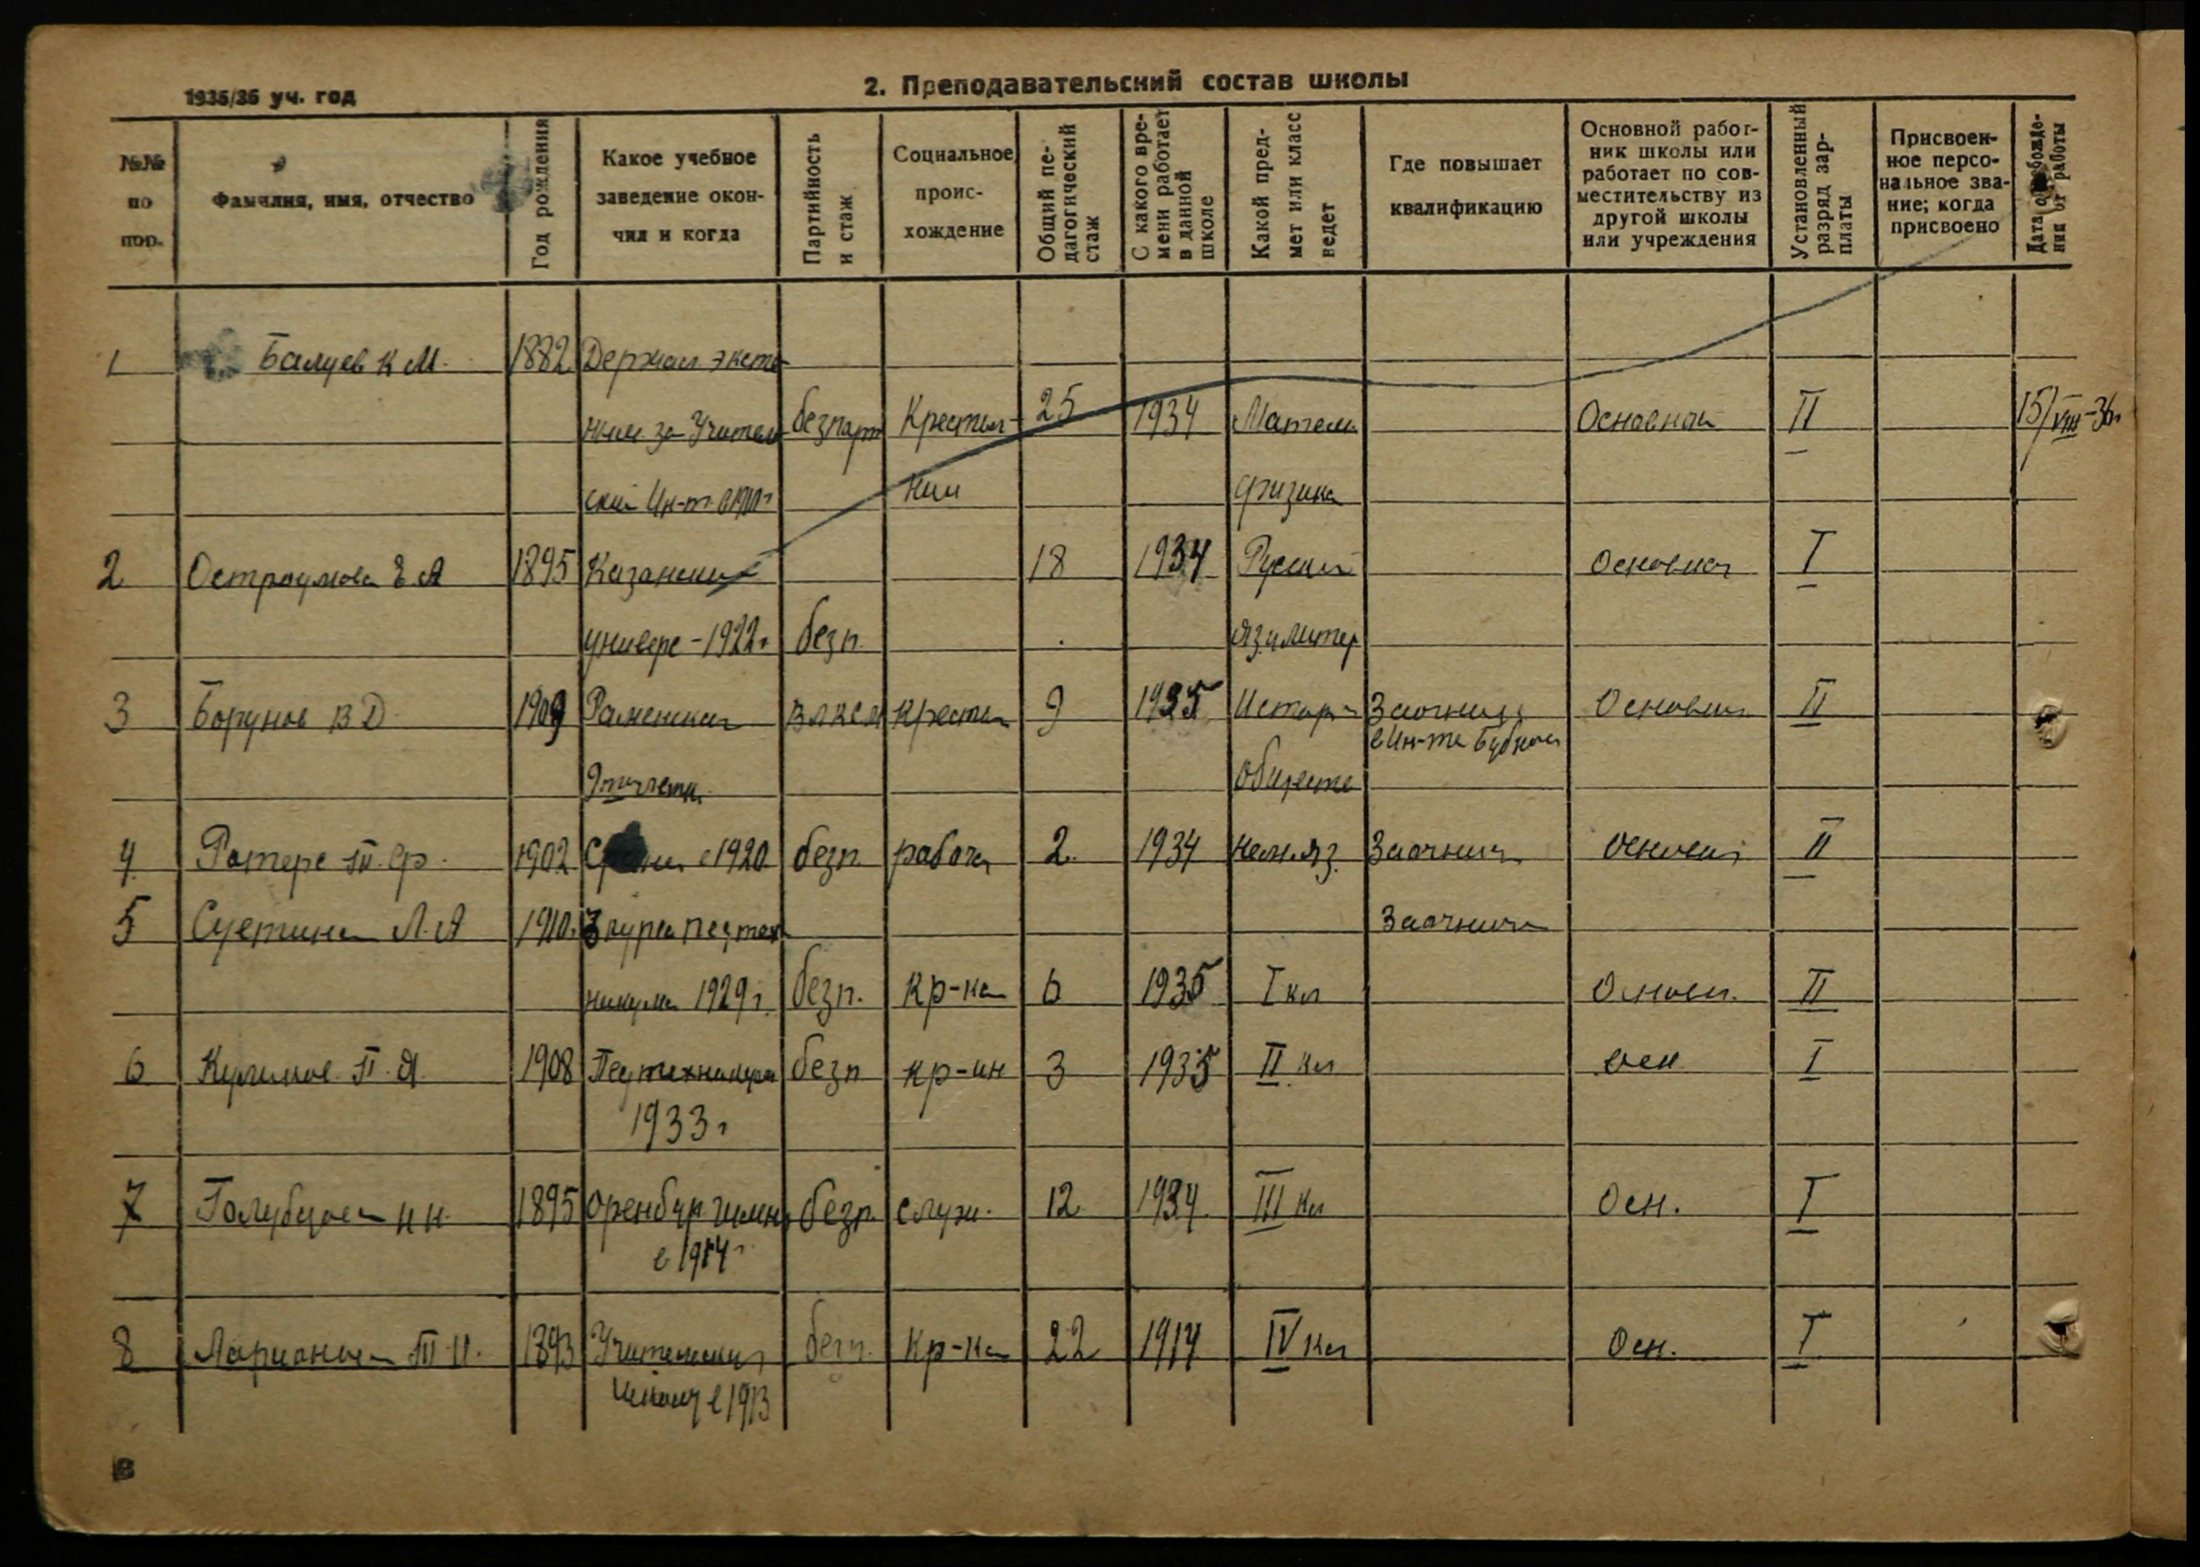 1935/36 уч. год
2. Преподавательский состав школы
№№ по пор.
Фамилия, имя, отчество
Год рождения
Какое учебное заведение окончил и когда
Партийность и стаж
Социальное происхождение
Общий педагогический стаж
С какого времени работает в данной школе
Какой предмет или класс ведет
Где повышает квалификацию
Основной работник школы или работает по совместительству из другой школы или учреждения
Установленный разряд зарплаты
Присвоенное персональное звание; когда присвоено
Дата освобождения от работы
1 Балуев К М. 1882 Держал экста
нию за Учитель безпарт Крестья- 25 1934 Матем. Основной II 15/VIII-36г
ский Ин-т нин физика
2 Остроумова Е А 1895 Казанский 18 1934 Русский Основной I
универс - 1922г безп. яз. и литер
3 Борунов В Д. 1909 Раменская ВЛКСМ Крестья 9 1935 Истор Заочник Основной II
в Ин-те Бубнова
9тилетк. Обществ
4 Ротерс Т. Ф. 1902 с 1920 безп. рабочи 2. 1934 Нем. яз. Заочник Основной II
5 Суетина Л. А 1910. 3 курса педтех Заочник
никума 1929г. безп. Кр-ка 6 1935 I кл Основн. II
6 П. Я. 1908 Педтехникум безп кр-ин 3 1935 II кл осн I
1933г
7 Голубцова Н Н. 1895 Оренбург гимн. безп. служ. 12 1934. III кл Осн. I
в 1914г
8 Ларионова Т И. 1893 Учительская безп. Кр-ка 22 1914 IV кл Осн. I
школу в 1913
8